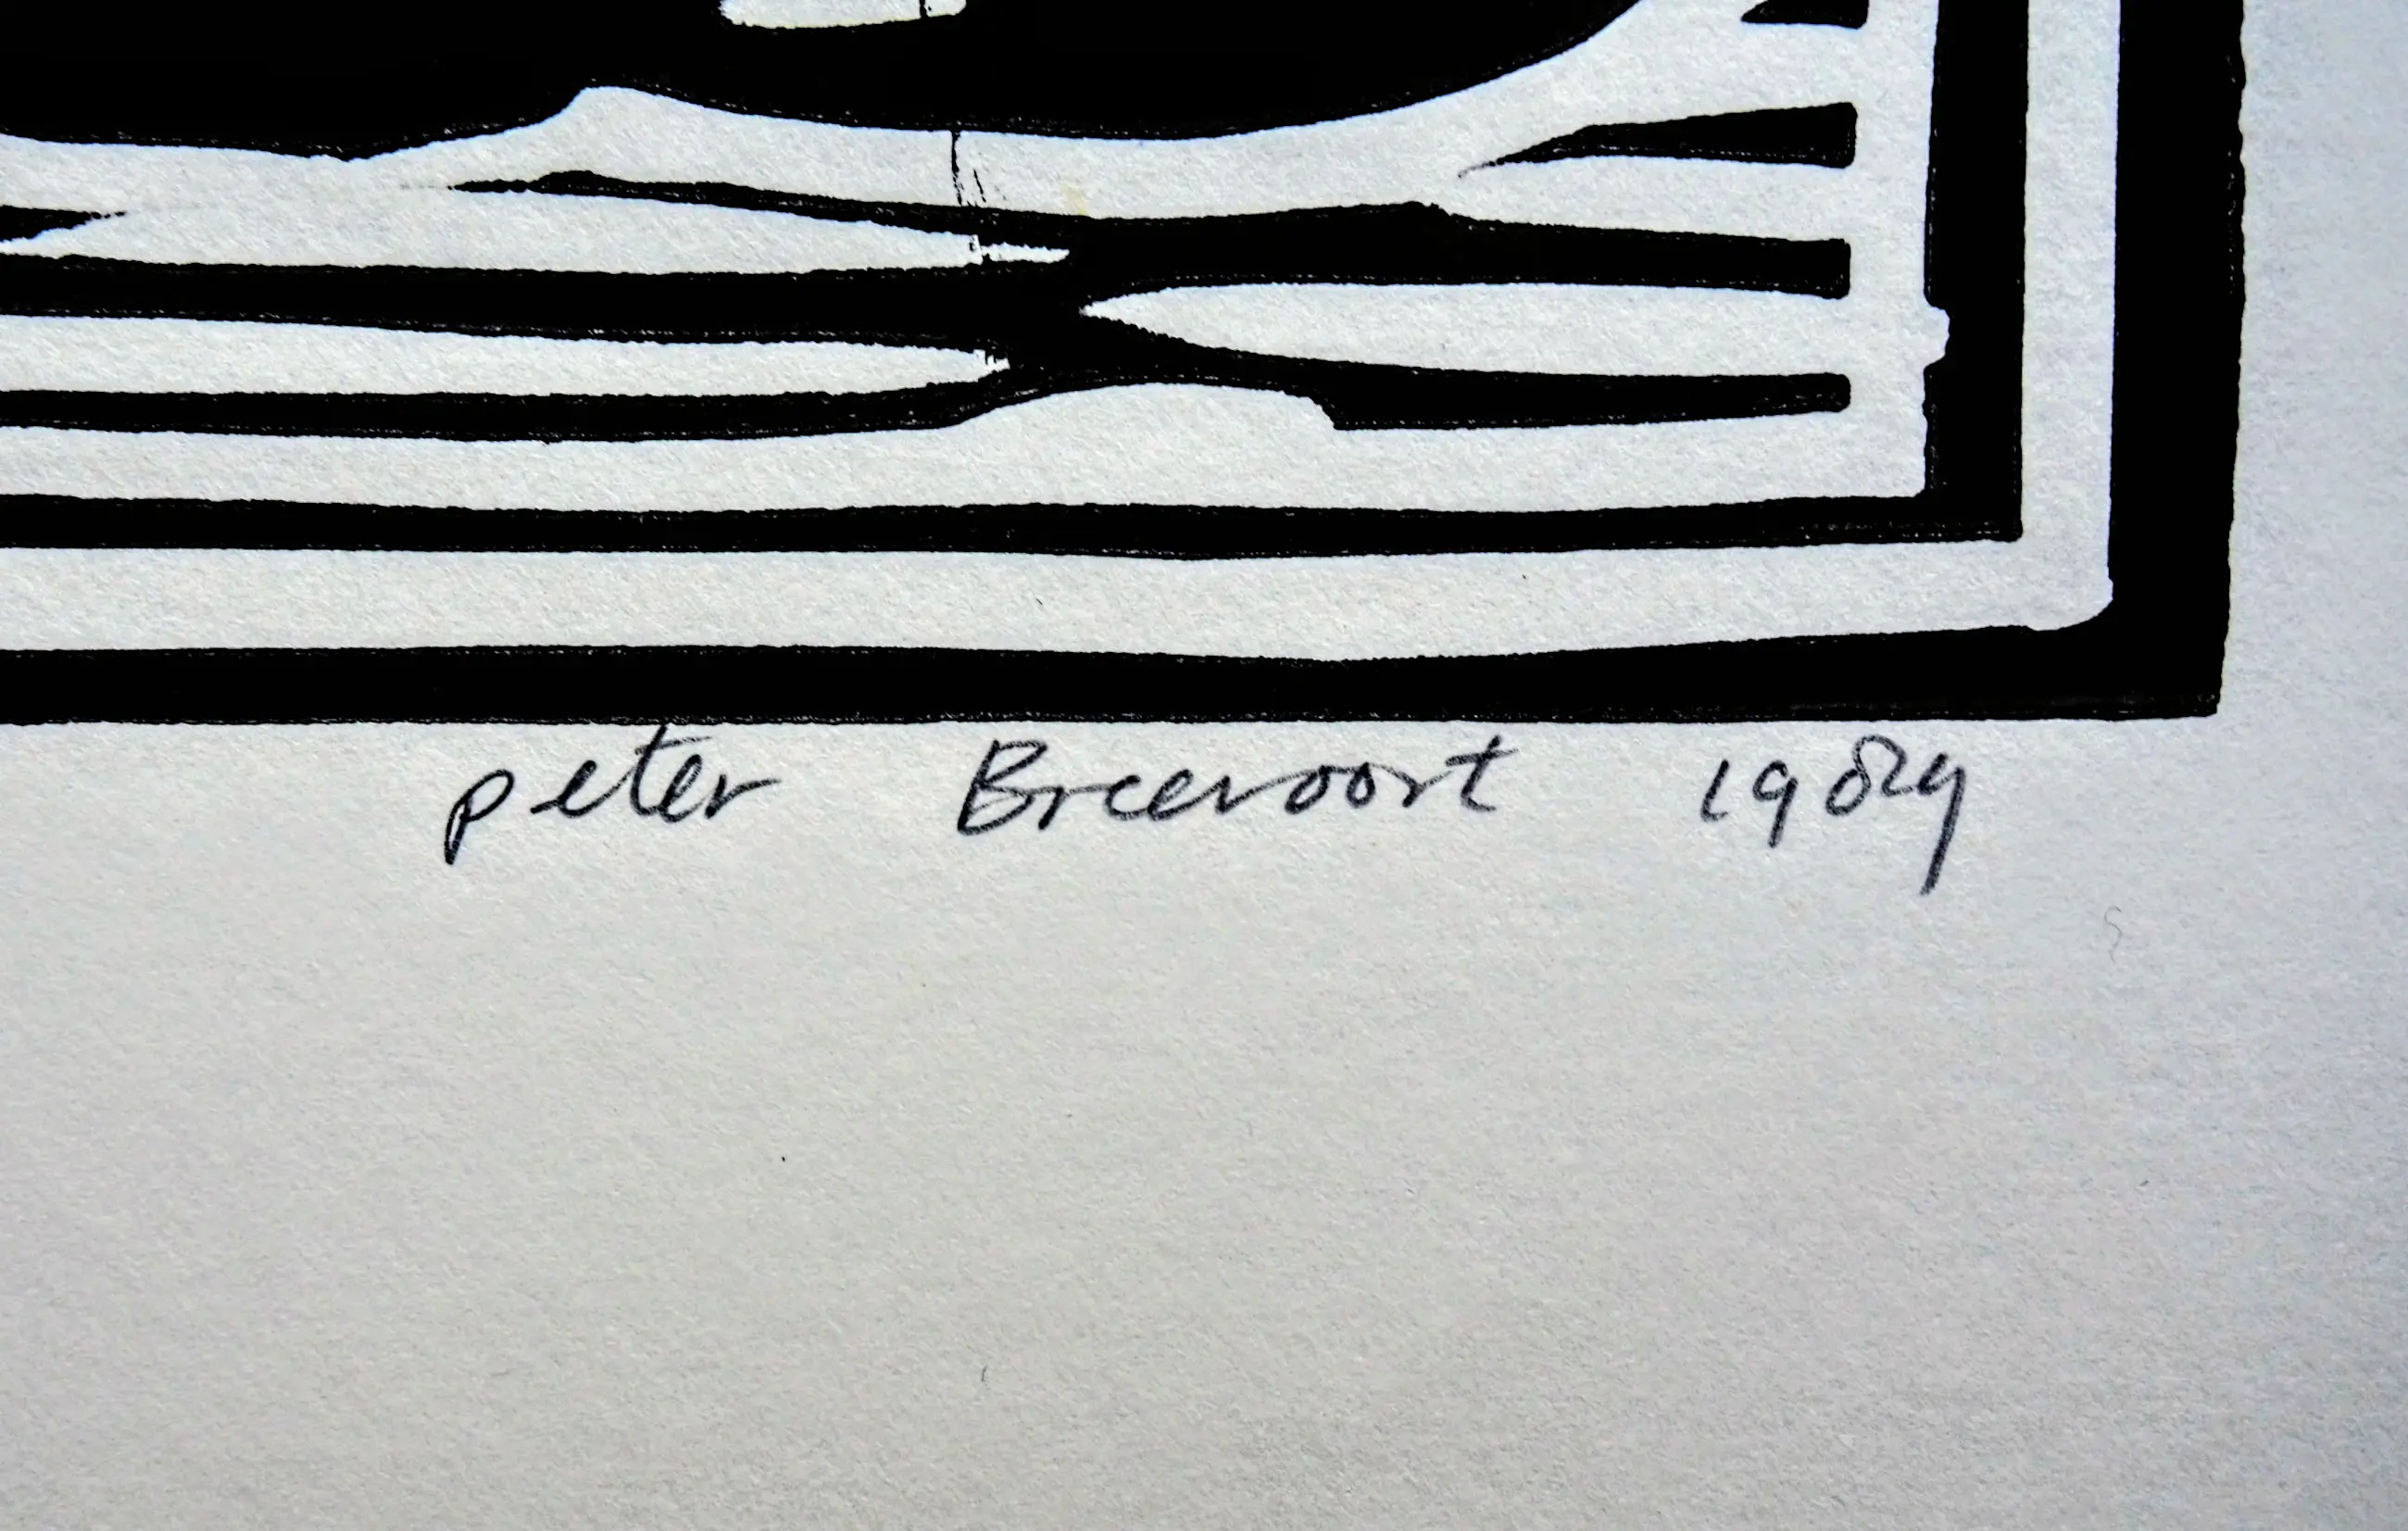 peter Breevoort 1989